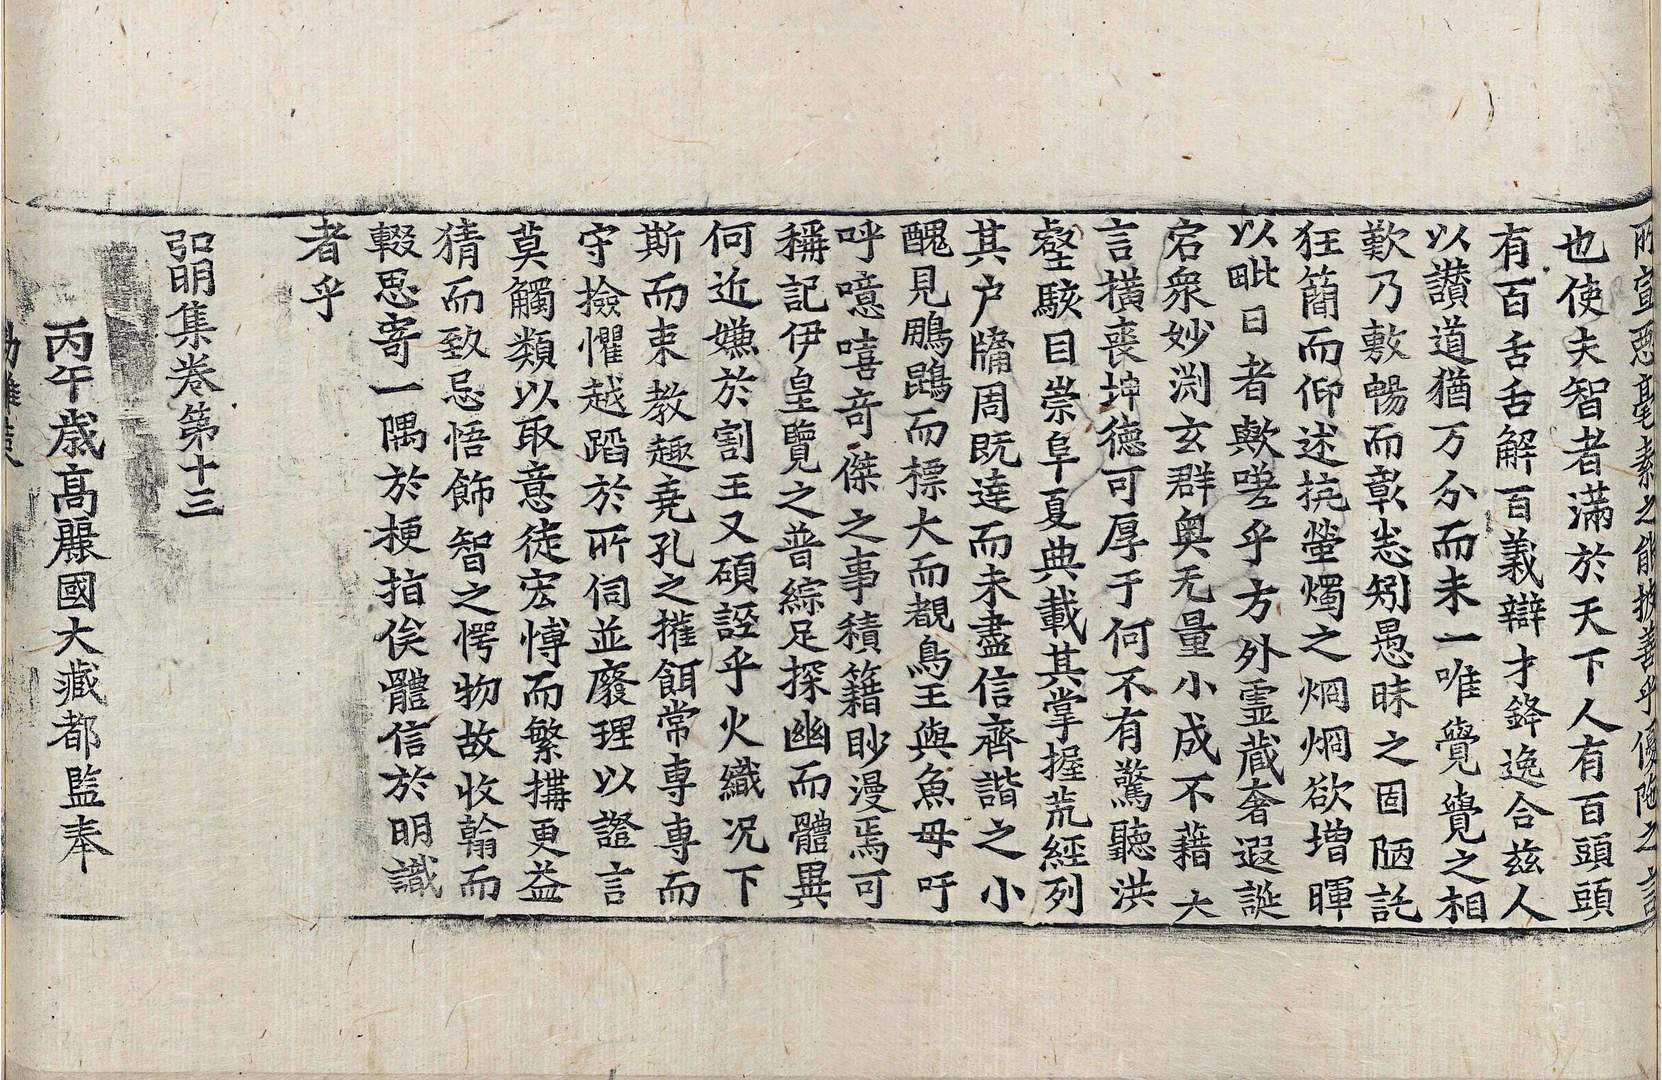 所宣惡毫素之能披善乎優陁之言
也使夫智者滿於天下人有百頭頭
有百舌舌解百義辯才鋒逸合茲人
以讚道猶万分而未一唯覺覺之相
歎乃敷暢而彰恚矧愚昧之固陋託
狂簡而仰述抗螢燭之炯炯欲增暉
以毗日者歟嗟乎方外靈藏奢遐誕
宕衆妙渕玄群奧无量小成不藉大
言橫喪坤德可厚于何不有驚聽洪
壑駭目崇阜夏典載其掌握荒經列
其户牖周既達而未盡信齊諧之小
醜見鵬鵾而標大而覩鳥王與魚母吁
呼噫嘻奇傑之事積籍眇漫焉可
稱記伊皇覽之普綜足探幽而體異
何近嫌於割玉又碩誣乎火織况下
斯而束教趣尭孔之摧餌常專專而
守撿懼越蹈於所伺並廢理以證言
莫觸類以取意徒宏愽而繁搆更益
猜而致忌悟飾智之愕物故收翰而
輟思寄一隅於梗㧑俟體信於明識
者乎
弘明集卷第十三
丙午歳髙麗國大藏都監奉